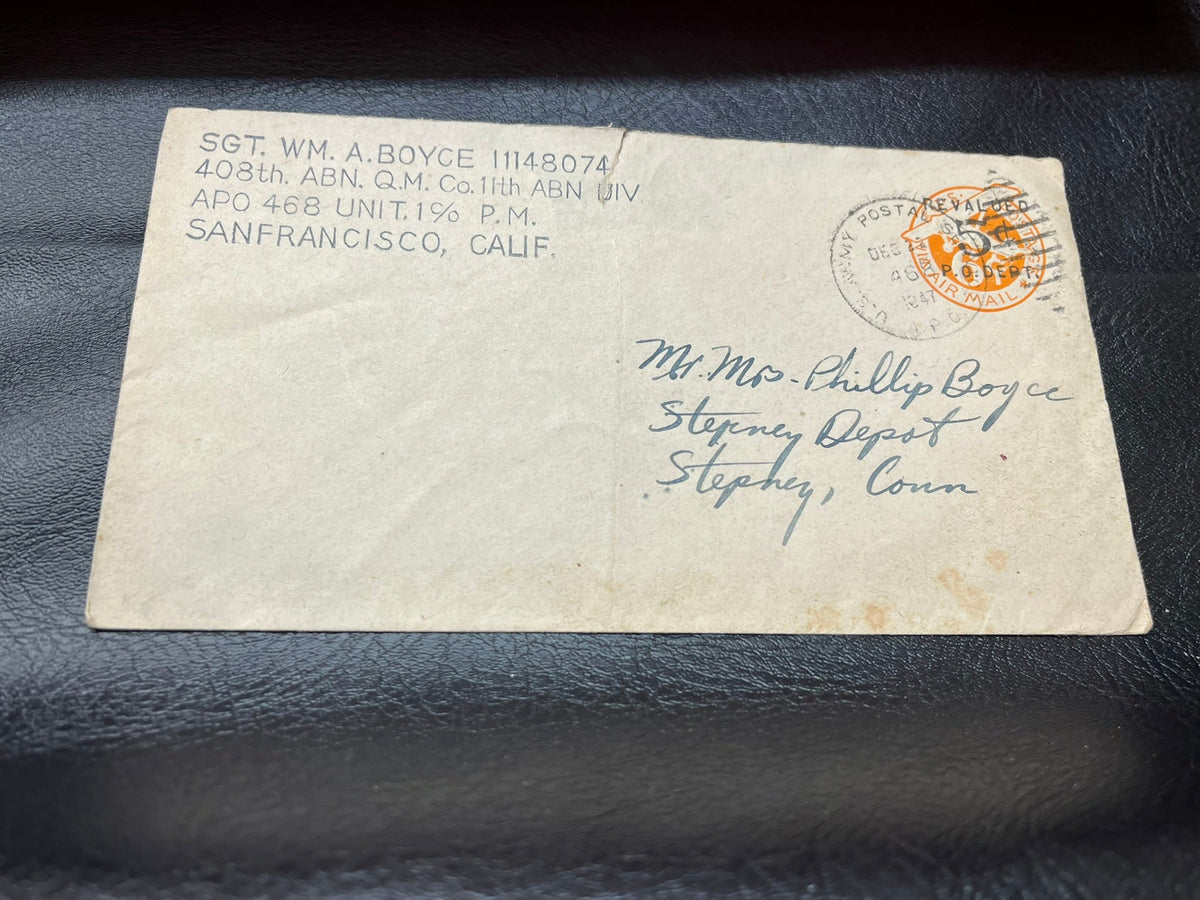 SGT. WM. A. BOYCE 11148074
408th. ABN. Q.M. Co. 11th ABN DIV
APO 468 UNIT. 1 c/o P.M.
SANFRANCISCO, CALIF.
U.S. ARMY POSTAL
DEC
46
1947
A.P.O.
REVALUED
5¢
P.O. DEPT.
6¢
VIA AIR MAIL
Mr. Mrs. Phillip Boyce
Stepney Depot
Stepney, Conn